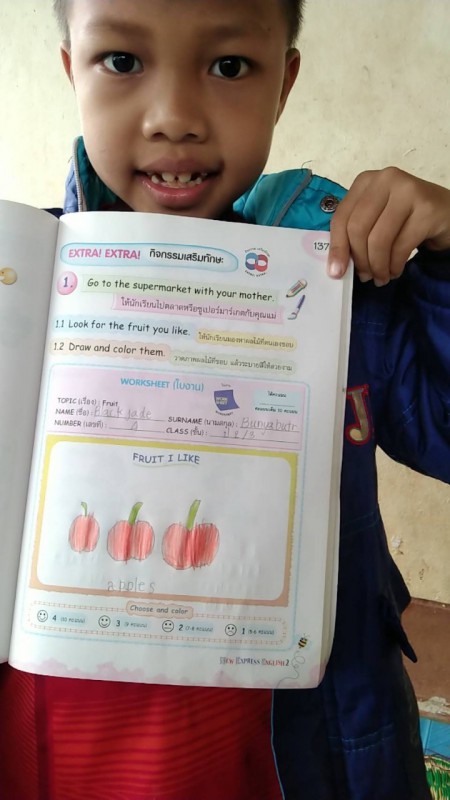 137
EXTRA! EXTRA! กิจกรรมเสริมทักษะ
1. Go to the supermarket with your mother.
ให้นักเรียนไปตลาดหรือซูเปอร์มาร์เกตกับคุณแม่
1.1 Look for the fruit you like. ให้นักเรียนมองหาผลไม้ที่ตนเองชอบ
1.2 Draw and color them. วาดภาพผลไม้ที่ชอบ แล้วระบายสีให้สวยงาม
WORKSHEET (ใบงาน)
TOPIC (เรื่อง) : Fruit
คะแนนเต็ม 10 คะแนน
NAME (ชื่อ) : Parkjade SURNAME (นามสกุล) :
NUMBER (เลขที่) : CLASS (ชั้น) :
FRUIT I LIKE
apples
Choose and color
4 (10 คะแนน) 3 (9 คะแนน) 2 (7-8 คะแนน) 1 (5-6 คะแนน)
NEW EXPRESS ENGLISH 2
J